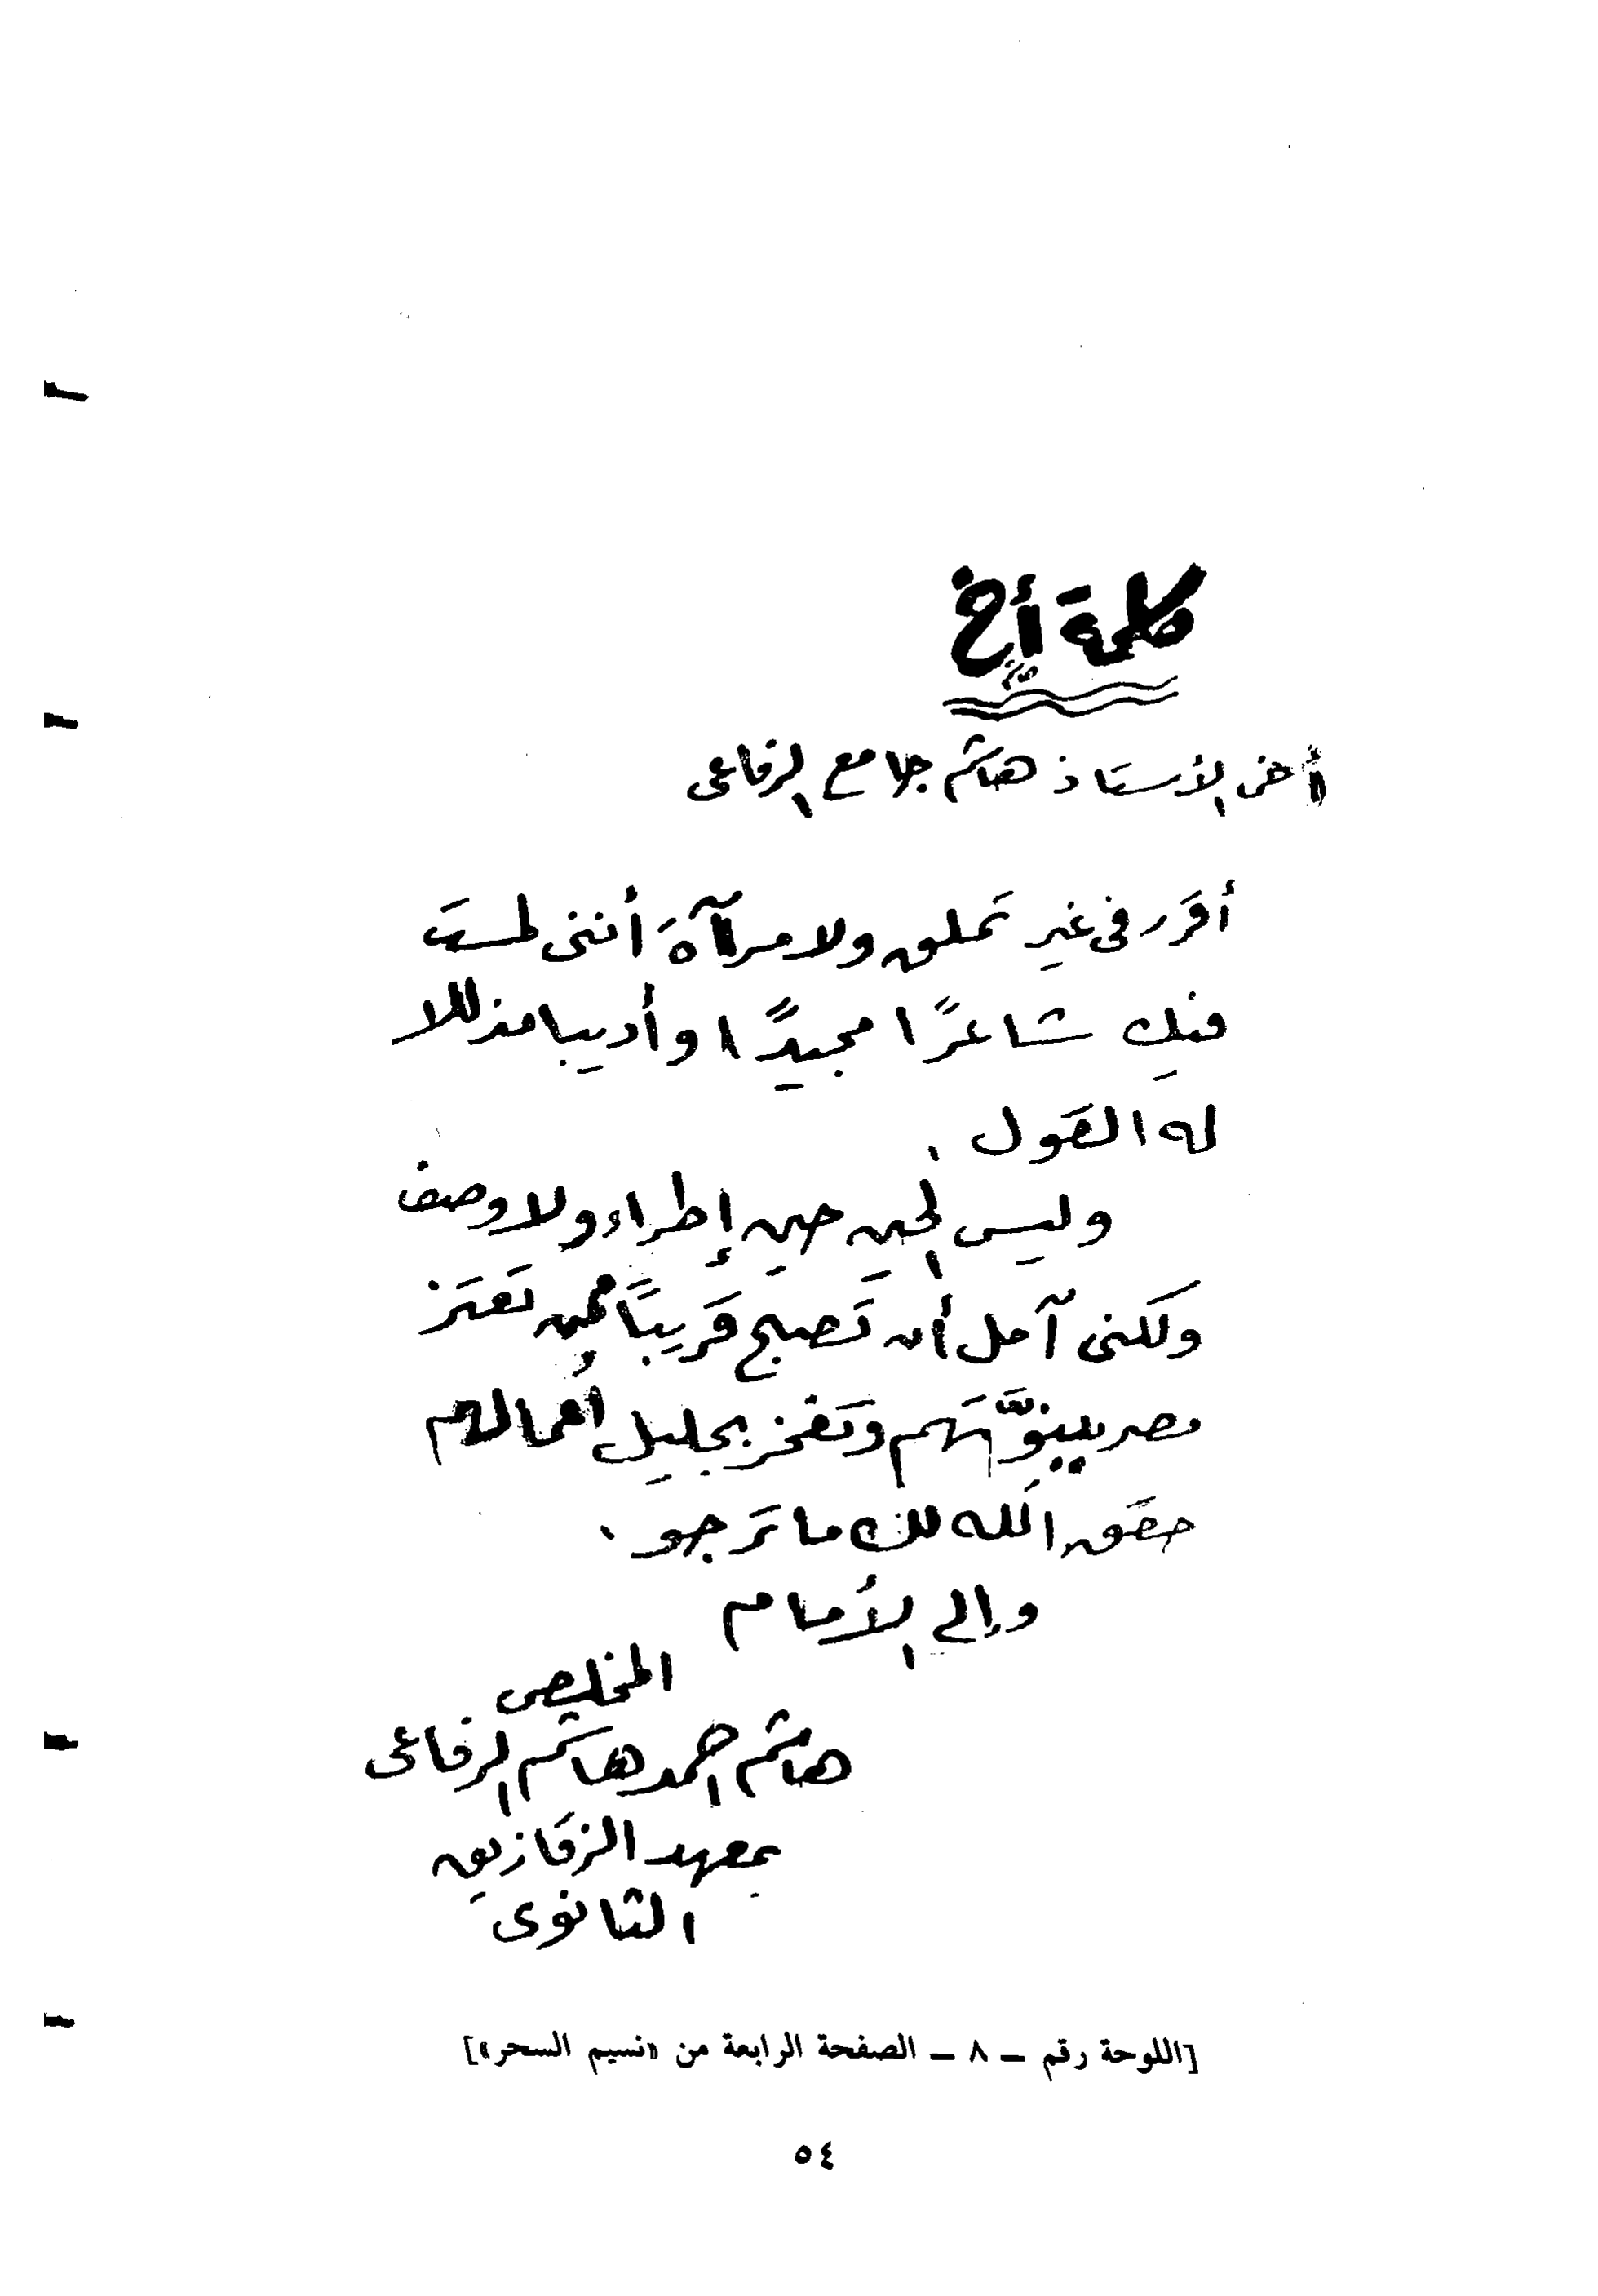 كلمة أخ
أخى الأستاذ هاشم جامع الرفاعى
أقرر فى غير تملق ولا مرآاة أننى لمست
فيك شاعرًا مجيدًا وأديبا مذللا
له القول .
وليس الحين حين إطراء ولا وصف
ولكنى آمل أن تصبح قريبًا ممن تعتز
مصر ببنوّتهم وتفخر بجليل أعمالهم
حقق الله لك ما ترجو .
وإلى الأمام
المخلص
هاشم احمد هاشم الرفاعى
بمعهد الزقازيق
الثانوى
[اللوحة رقم – ٨ – الصفحة الرابعة من «نسيم السحر»]
٥٤